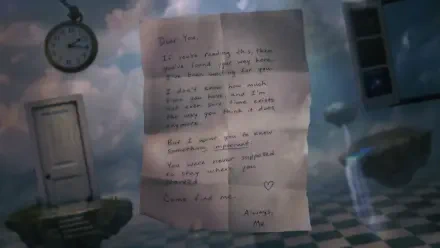 Dear You,
If you're reading this, then
you've found your way here.
I've been waiting for you.
I don't know how much
time you have and I'm
not even sure time exists
the way you think it does
anymore.
But I need you to know
something important
You were never supposed
to stay where you
started
Come find me.
Always,
Me